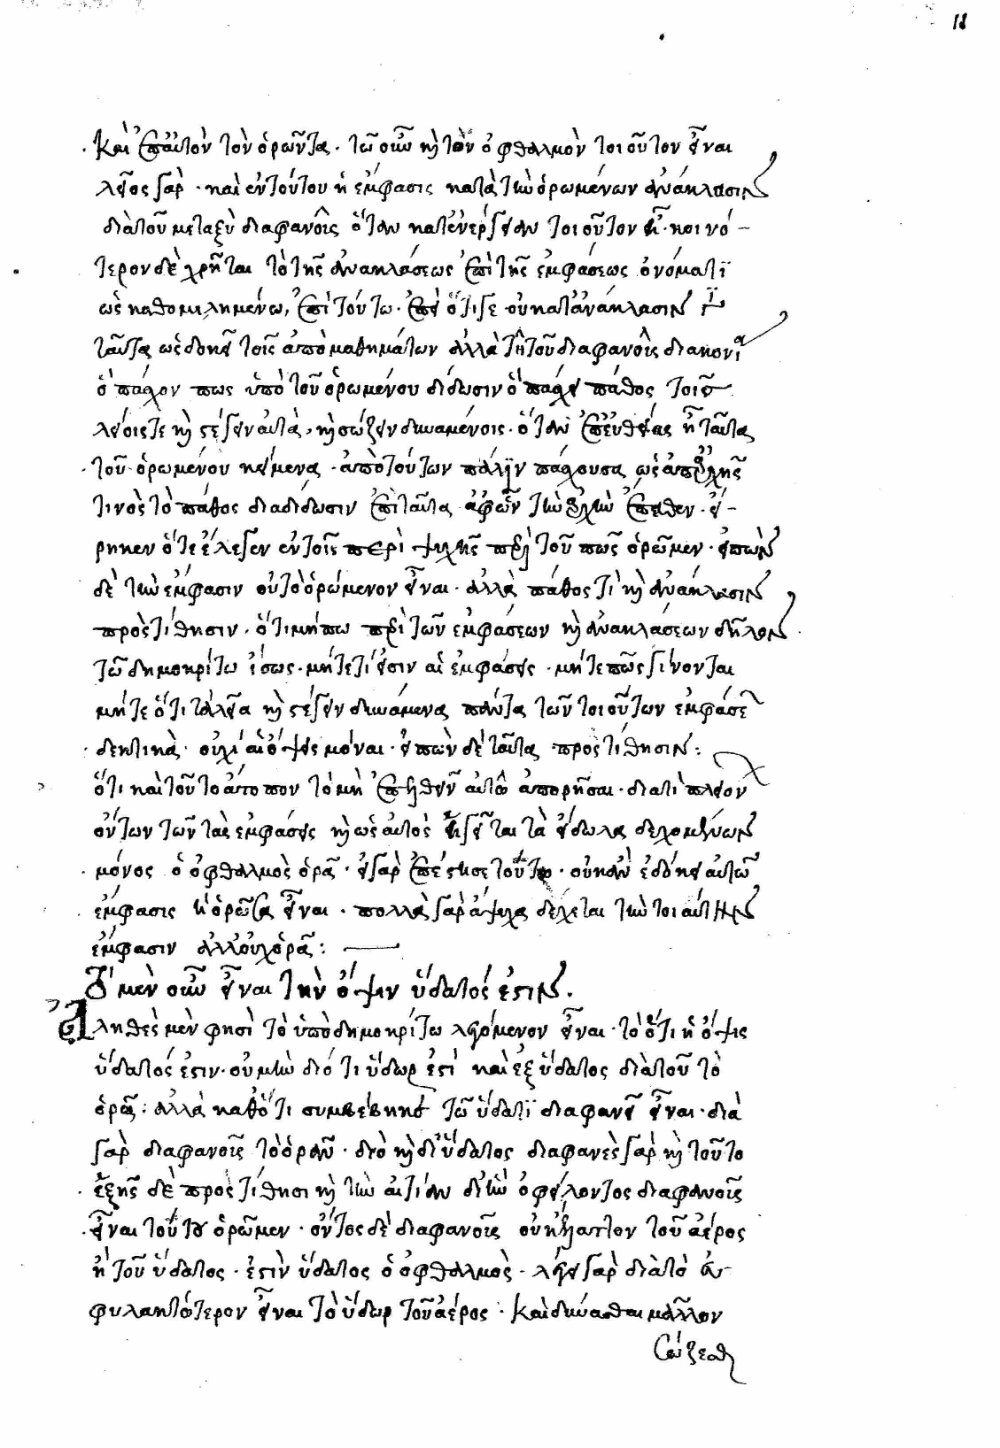 11
καὶ ἐπ' αὐτὸν τὸν ὁρῶντα. τῶ οὖν καὶ τὸν ὀφθαλμὸν τοιοῦτον εἶναι
λεῖος γὰρ. καὶ ἐν τούτου ἡ ἔμφασις κατὰ τὴν ὁρωμένων ἀνάκλασιν
διὰ τοῦ μεταξὺ διαφανοῦς ὅταν κατ' ἐνέργειαν τοιοῦτον ἦ. κοινό-
τερον δὲ χρῆται τὸ τῆς ἀνακλάσεως ἐπὶ τῆς ἐμφάσεως ὀνόματι
ὡς καθομιλημένω, ἐπὶ τούτω. ἐπεὶ ὅτι γε οὐ κατ' ἀνάκλασιν
ταῦτα ὡς δοκεῖ τοῖς ἀπὸ μαθημάτων ἀλλὰ τῆ τοῦ διαφανοῦς διακονία
ὃ πάσχον πως ὑπὸ τοῦ ὁρωμένου δίδωσιν ὃ πάσχει πάθος τοῖς
λείοις τε καὶ στέγειν αὐτὰ, καὶ σώζειν δυναμένοις. ὅταν ἐπ' εὐθείας ἦ ταῦτα
τοῦ ὁρωμένου κείμενα. ἀπὸ τούτων πάλιν πάσχουσα ὡς ἀπ' ἀρχῆς
τινὸς τὸ πάθος διαδίδωσιν ἐπὶ ταῦτα ἀφ' ὧν τὴν ἀρχὴν ἔπαθεν. εἴ-
ρηκεν ὅτε ἔλεγεν ἐν τοῖς περὶ ψυχῆς περὶ τοῦ πῶς ὁρῶμεν. εἰπὼν
δὲ τὴν ἔμφασιν οὐ τὸ ὁρώμενον εἶναι. ἀλλὰ πάθος τι καὶ ἀνάκλασιν
προστίθησιν. ὅτι μήπω περὶ τῶν ἐμφάσεων καὶ ἀνακλάσεων δῆλον.
τῶ δημοκρίτω ἴσως. μήτε τί εἰσιν αἱ ἐμφάσεις. μήτε πῶς γίνονται
μήτε ὅτι τὰ λεῖα καὶ στέγειν δυνάμενα πάντα τῶν τοιούτων ἐμφάσεων
δεκτικὰ. οὐχὶ αἱ ὄψεις μόναι. εἰπὼν δὲ ταῦτα προστίθησιν:
ὅτι καὶ τοῦτο ἄτοπον τὸ μὴ ἐπελθεῖν αὐτῶ ἀπορῆσαι. διατὶ πλειόν
ὄντων τῶν τὰς ἐμφάσεις καὶ ὡς αὐτὸς ἡγεῖται τὰ εἴδωλα δεχομένων
μόνος ὁ ὀφθαλμὸς ὁρᾶ. εἰ γὰρ ἐπέστησε τούτω. οὐκ ἂν ἐδόκει αὐτῶ
ἔμφασις ἡ ὁρῶσα εἶναι. πολλὰ γὰρ ἄψυχα δέχεται τὴν τοιαύτην
ἔμφασιν ἀλλ' οὐχ ὁρᾶ:
Τὸ μὲν οὖν εἶναι τὴν ὄψιν ὕδατος ἐστιν.
Ἀληθὲς μὲν φησὶ τὸ ὑπὸ δημοκρίτω λεγόμενον εἶναι. τὸ ὅτι ἡ ὄψις
ὕδατός ἐστιν. οὐ μὴν διότι ὕδωρ ἐστὶ καὶ ἐξ ὕδατος διὰ τοῦ τὸ
ὁρᾶ: ἀλλὰ καθ' ὅτι συμβέβηκε τῶ ὕδατι διαφανεῖ εἶναι. διὰ
γὰρ διαφανοῦς τὸ ὁρᾶν. διὸ καὶ δι' ὕδατος διαφανὲς γὰρ καὶ τοῦτο
ἑξῆς δὲ προστίθησι καὶ τὴν αἰτίαν δι' ἣν ὀφείλοντος διαφανοῦς
εἶναι τούτου ὁρῶμεν. ὄντος δὲ διαφανοῦς οὐκ ἔλαττον τοῦ ἀέρος
ἢ τοῦ ὕδατος. ἐστὶν ὕδατος ὁ ὀφθαλμὸς. λέγει γὰρ διὰ τὸ εὐ
φυλακτότερον εἶναι τὸ ὕδωρ τοῦ ἀέρος. καὶ δύνασθαι μᾶλλον
σώζεσθαι